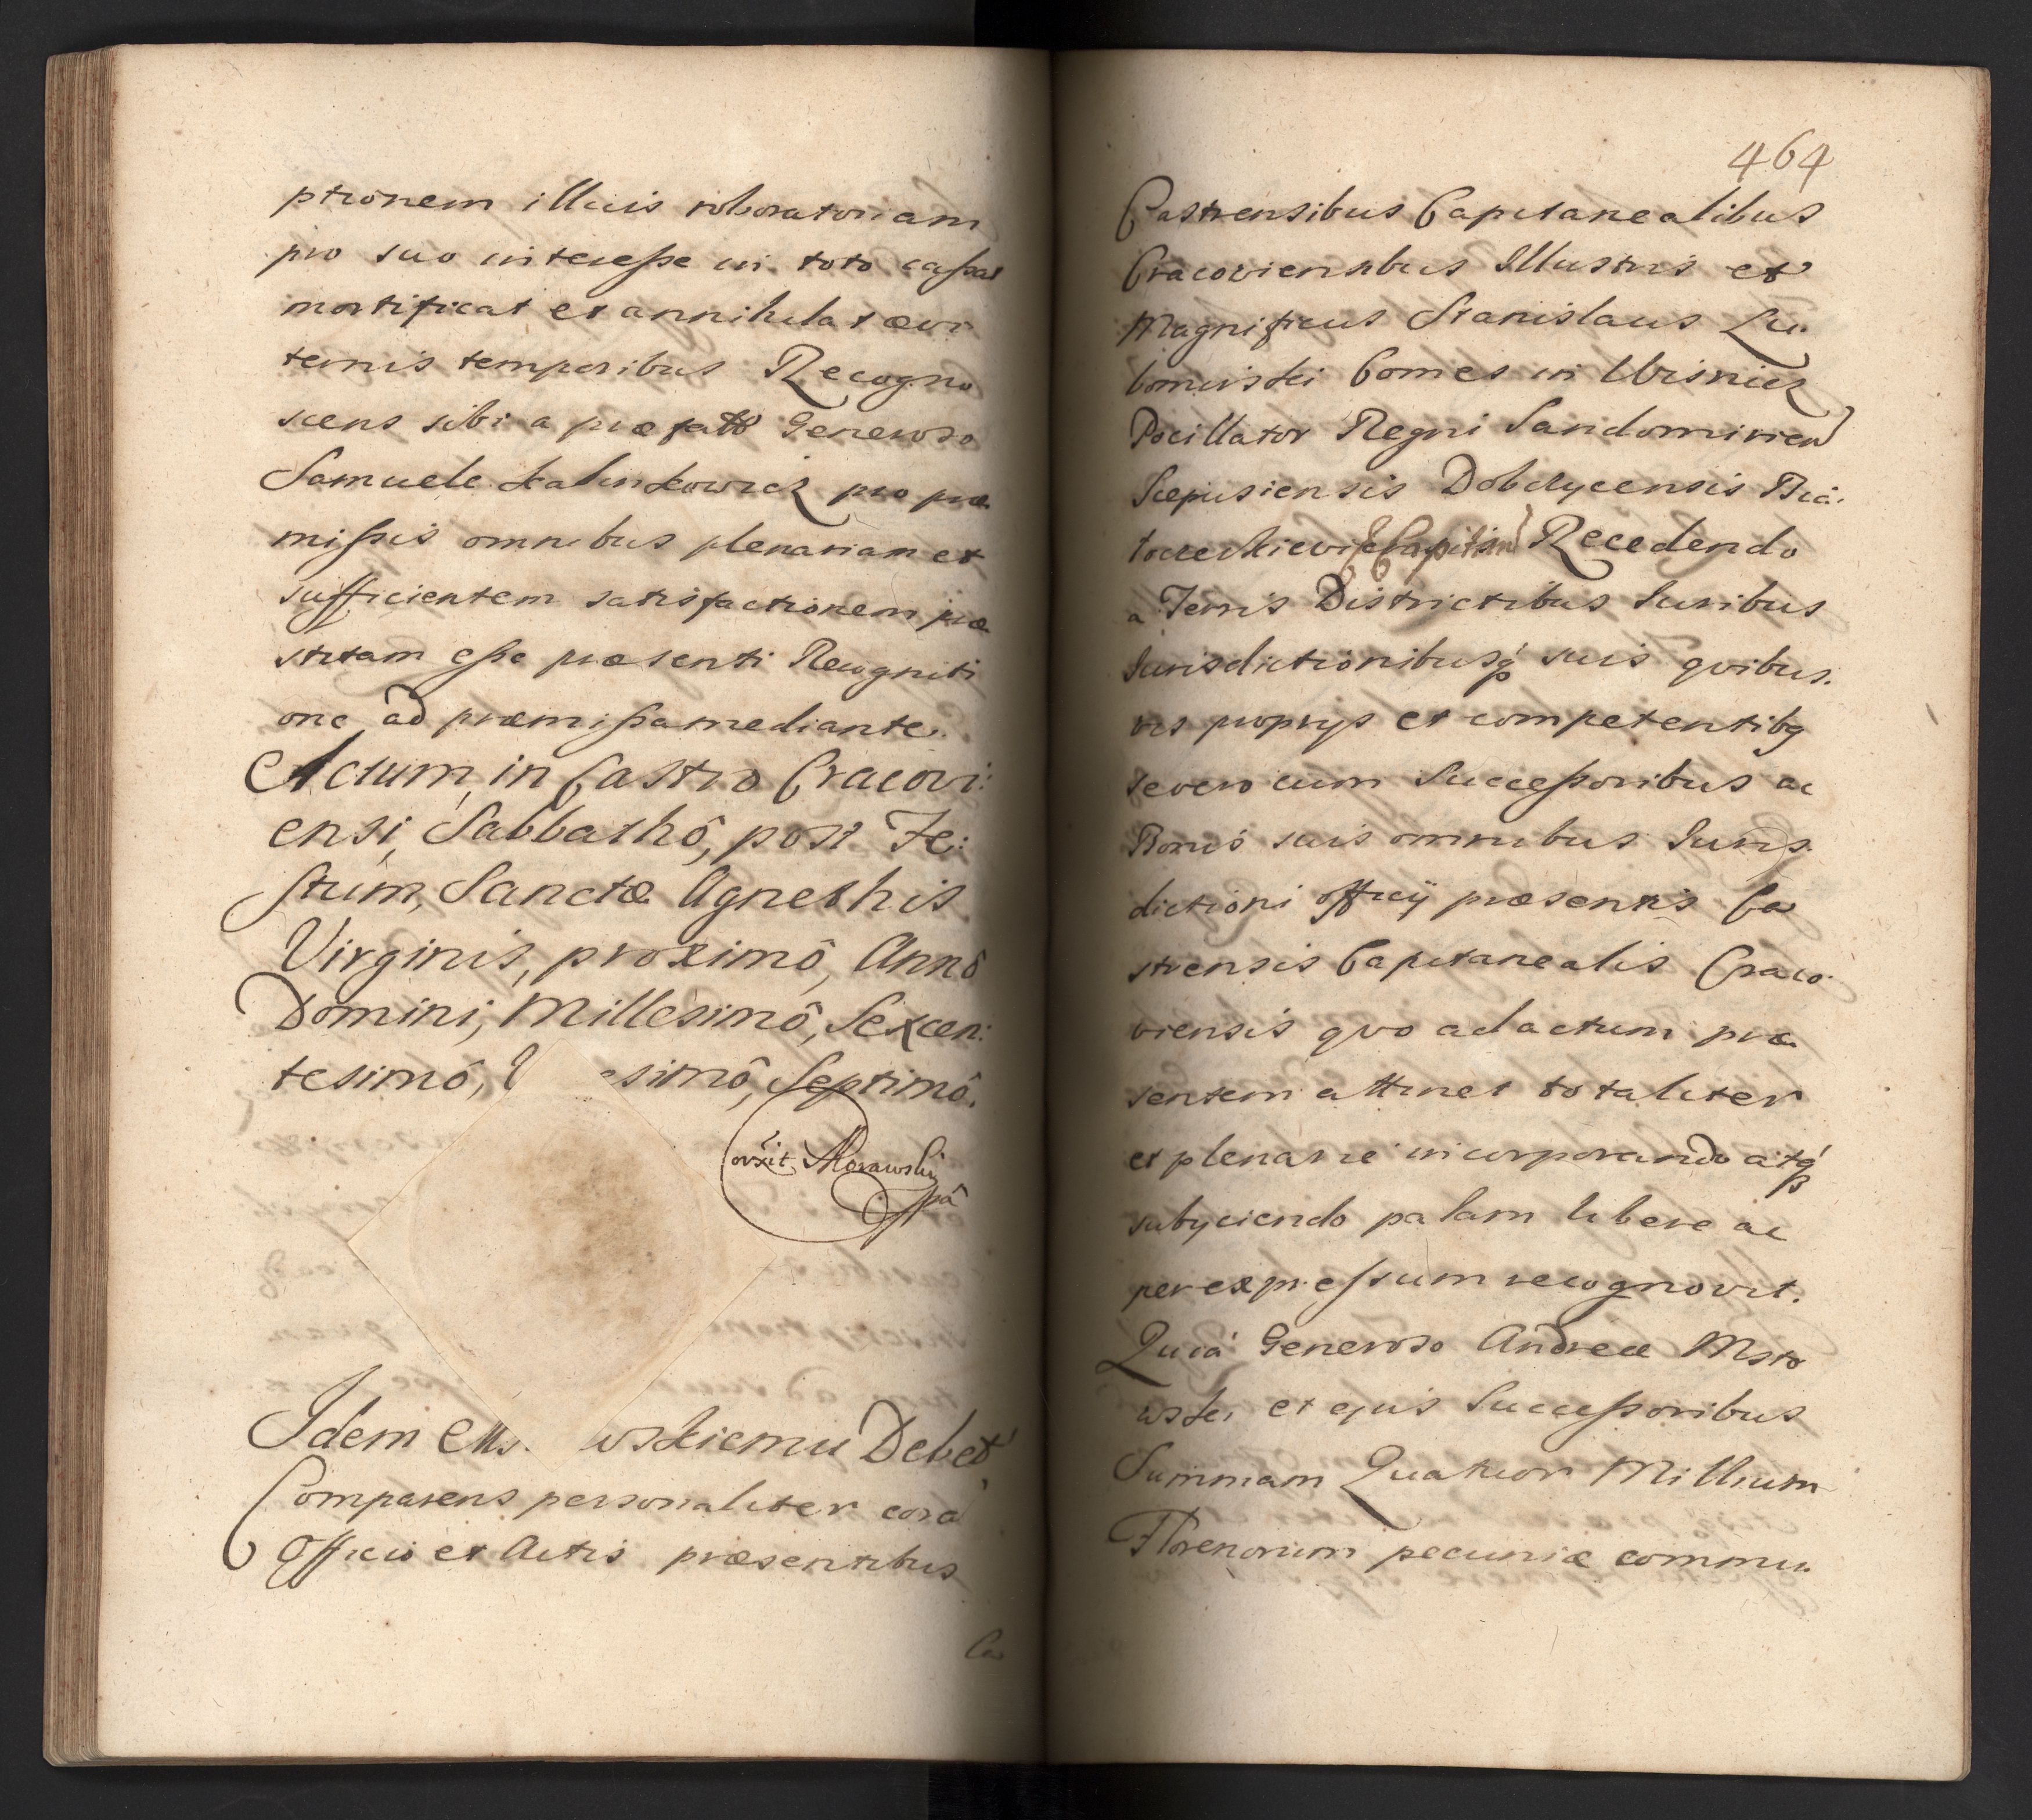 ptionem illius roboratoriam
pro suo interesse in toto cassat
mortificat et annihilat ævi
ternis temporibus Recogno
scens sibi a præfatto Generoso
Samuele Kalinkowicz pro præ
missis omnibus plenariam et
sufficientem satisfactionem præ
stitam esse præsenti Recogniti
one ad præmissa mediante.
Actum, in Castro Cracovi:
ensi, Sabbathô, post Fe:
stum, Sanctæ Agnethis
Virginis, proximô, Annô
Domini, Millesimô, Sexcen:
tesimô, esimô, Septimô.
Morawski
Idem wskiemu Debet
Comparens personaliter corã
Officio et Actis præsentibus
Ca
464
Castrensibus Capitanealibus
Cracoviensibus Illustris et
Magnificus Stanislaus Lu
bomirski Comes in Wisnicz
Pocillator Regni Sandomirien
Scepusiensis Dobczycensis Bia:
Capitan Recedendo
a Terris Districtibus Iuribus
Iurisdictionibusq suis quibus.
vis proprys et competentibq
severo cum Successoribus ac
Bonis suis omnibus Iuris
dictioni officij præsentis Ca
strensis Capitanealis Craco
viensis quo ad actum præ
sentem attinet totaliter
et plenarie incorporando atq
subyciendo palam libere ac
per expressum recognovit.
Quia Generoso Andreæ Msto
wski et ejus Successoribus
Summam Quatuor Millium
Florenorum pecuniæ commu